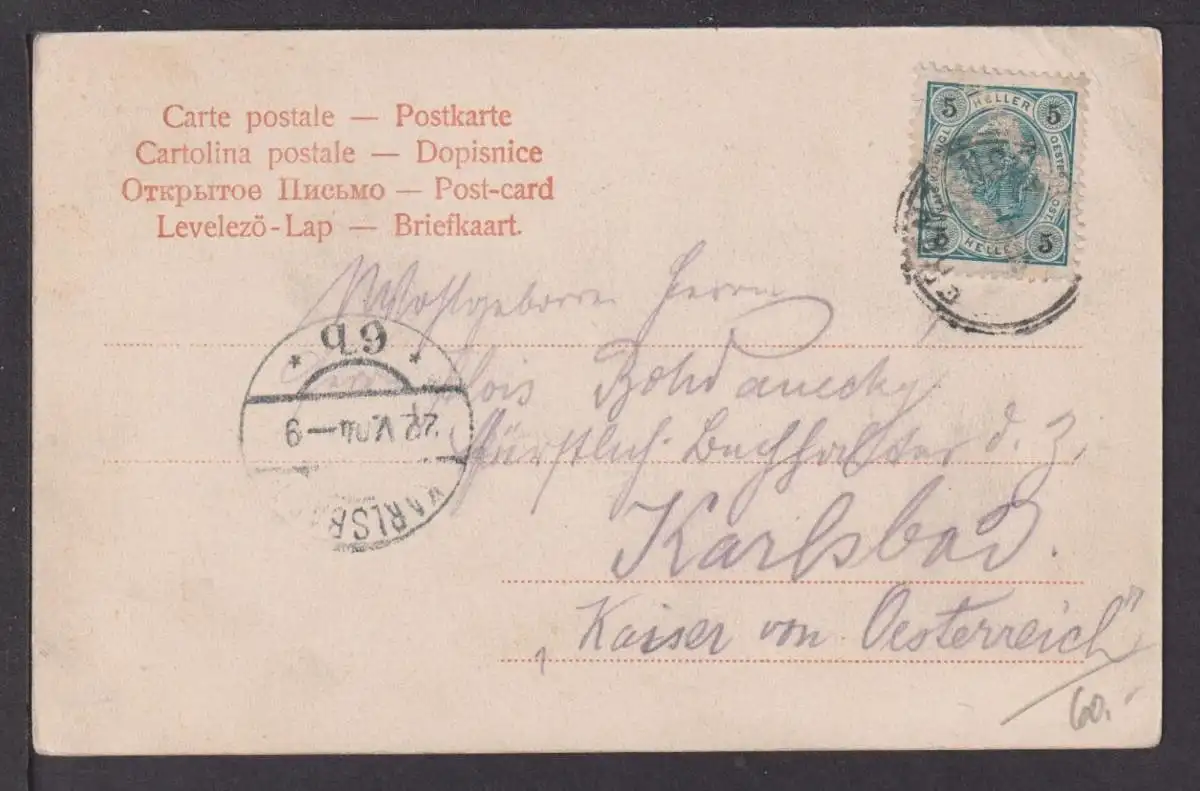 Carte postale — Postkarte
Cartolina postale — Dopisnice
Открытое Письмо — Post-card
Levelező-Lap — Briefkaart.
5 HELLER 5
5 HELLER 5
Wohlgeboren Herrn
Alois Bohdanecky
Fürstlich Buchhalter d. Z.
Karlsbad.
„Kaiser von Oesterreich"
60.-
* 6b *
V.04—9
KARLSB